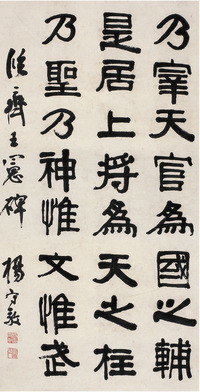 乃宰天官為國之輔
是居上將為天之柱
乃聖乃神惟文惟武
臨齊王憲碑 楊守敬